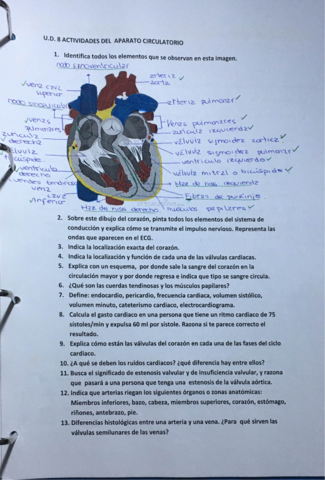 U.D. 8 ACTIVIDADES DEL APARATO CIRCULATORIO
1. Identifica todos los elementos que se observan en esta imagen.
nodo sinoventricular
arteria
aorta
vena cava
superior
nodo sinoauricular
arteria pulmonar
venas
pulmonares
Venas pulmonares
aurícula
derecha
aurícula izquierda
válvula sigmoidea aortica
válvula
tricúspide
válvula sigmoidea pulmonar
ventrículo izquierdo
ventrículo
derecho
válvula mitral o bicúspide
cuerdas tendinosas
Haz de his izquierdo
vena
cava
inferior
Fibras de purkinje
Haz de his derecho
músculos papilares
2. Sobre este dibujo del corazón, pinta todos los elementos del sistema de
conducción y explica cómo se transmite el impulso nervioso. Representa las
ondas que aparecen en el ECG.
3. Indica la localización exacta del corazón.
4. Indica la localización y función de cada una de las válvulas cardiacas.
5. Explica con un esquema, por donde sale la sangre del corazón en la
circulación mayor y por donde regresa e indica que tipo se sangre circula.
6. ¿Qué son las cuerdas tendinosas y los músculos papilares?
7. Define: endocardio, pericardio, frecuencia cardiaca, volumen sistólico,
volumen minuto, cateterismo cardiaco, electrocardiograma.
8. Calcula el gasto cardiaco en una persona que tiene un ritmo cardiaco de 75
sístoles/min y expulsa 60 ml por sístole. Razona si te parece correcto el
resultado.
9. Explica cómo están las válvulas del corazón en cada una de las fases del ciclo
cardiaco.
10. ¿A qué se deben los ruidos cardiacos? ¿qué diferencia hay entre ellos?
11. Busca el significado de estenosis valvular y de insuficiencia valvular, y razona
que pasará a una persona que tenga una estenosis de la válvula aórtica.
12. Indica que arterias riegan los siguientes órganos o zonas anatómicas:
Miembros inferiores, bazo, cabeza, miembros superiores, corazón, estómago,
riñones, antebrazo, pie.
13. Diferencias histológicas entre una arteria y una vena. ¿Para qué sirven las
válvulas semilunares de las venas?